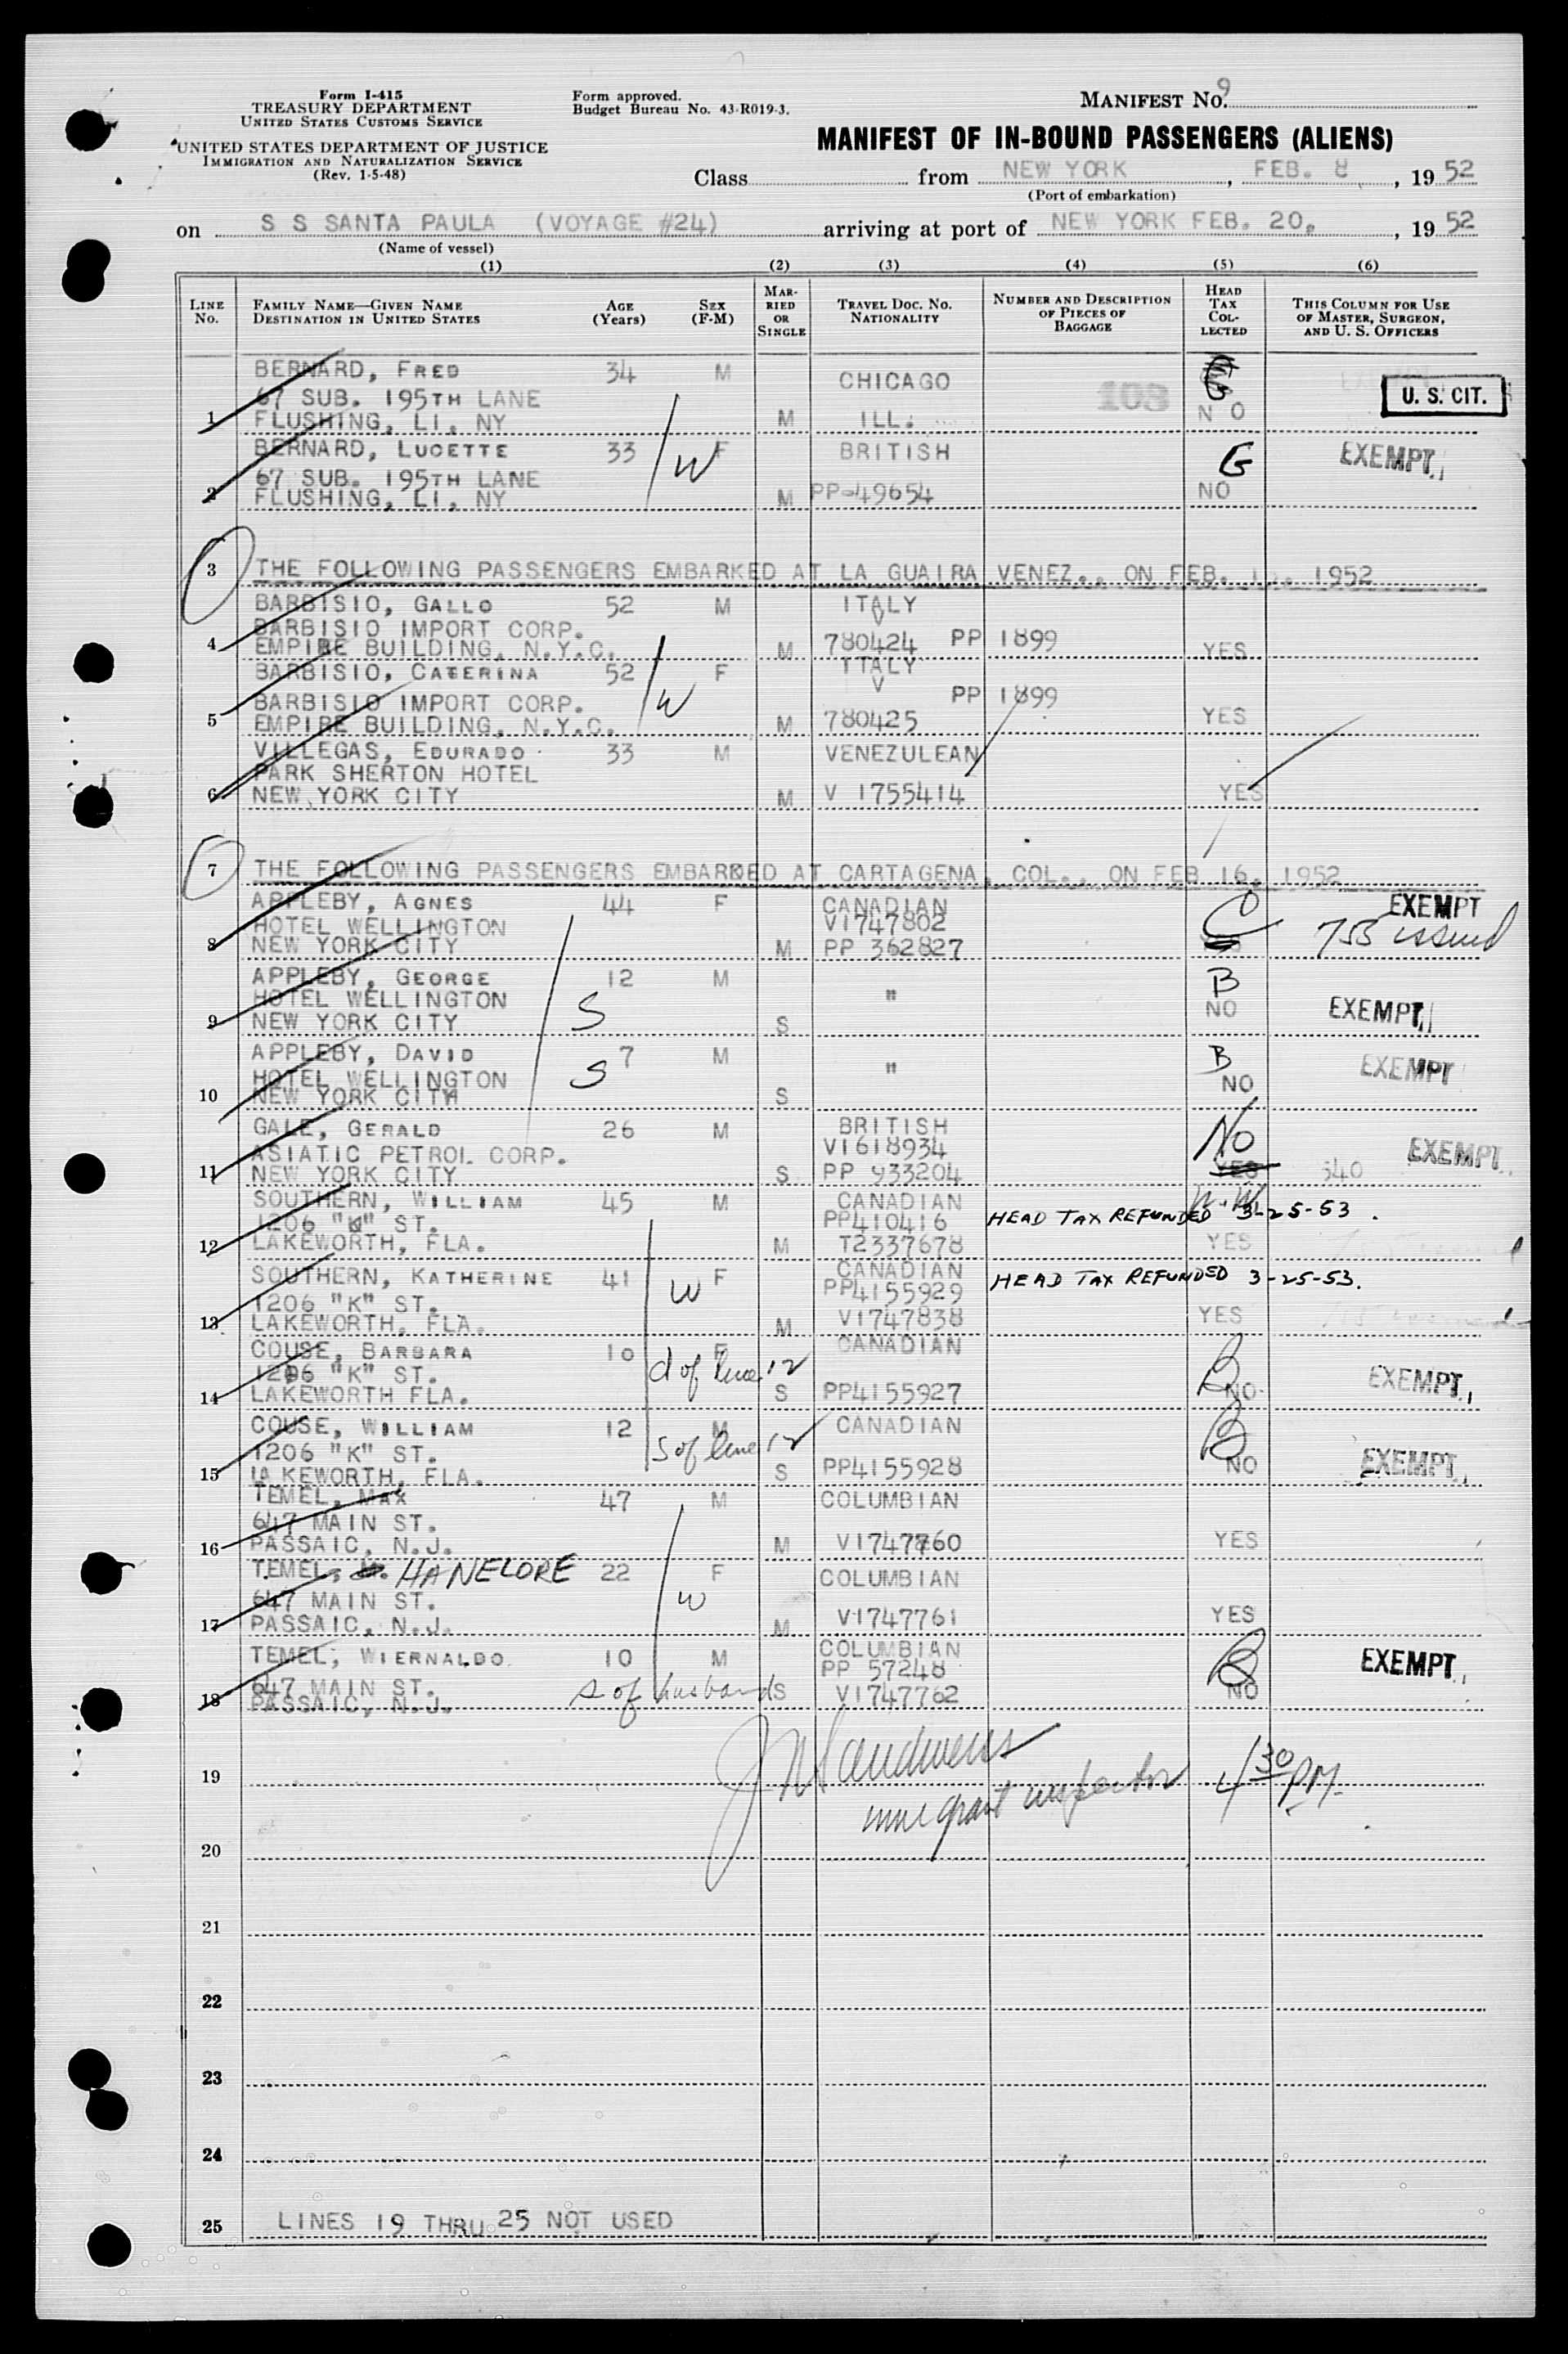 Form I-415
TREASURY DEPARTMENT
UNITED STATES CUSTOMS SERVICE
UNITED STATES DEPARTMENT OF JUSTICE
IMMIGRATION AND NATURALIZATION SERVICE
(Rev. 1-5-48)
Form approved.
Budget Bureau No. 43-R019-3.
MANIFEST No. 9
MANIFEST OF IN-BOUND PASSENGERS (ALIENS)
Class from NEW YORK, FEB. 8, 1952
(Port of embarkation)
on S S SANTA PAULA (VOYAGE #24) arriving at port of NEW YORK FEB. 20, , 1952
(Name of vessel)
(1) (2) (3) (4) (5) (6)
LINE No.
FAMILY NAME—GIVEN NAME
DESTINATION IN UNITED STATES
AGE (Years)
SEX (F-M)
MARRIED OR SINGLE
TRAVEL DOC. NO.
NATIONALITY
NUMBER AND DESCRIPTION OF PIECES OF BAGGAGE
HEAD TAX COLLECTED
THIS COLUMN FOR USE OF MASTER, SURGEON, AND U. S. OFFICERS
BERNARD, FRED 34 M CHICAGO 103 G U. S. CIT.
67 SUB. 195TH LANE
1 FLUSHING, LI, NY M ILL. NO
BERNARD, LUCETTE 33 W F BRITISH G EXEMPT
67 SUB. 195TH LANE
2 FLUSHING, LI, NY M PP-49654 NO
3 THE FOLLOWING PASSENGERS EMBARKED AT LA GUAIRA VENEZ., ON FEB. 1952
BARBISIO, GALLO 52 M ITALY
BARBISIO IMPORT CORP. V
4 EMPIRE BUILDING, N.Y.C. M 780424 PP 1899 YES
BARBISIO, CATERINA 52 W F ITALY
BARBISIO IMPORT CORP. V PP 1899
5 EMPIRE BUILDING, N.Y.C. M 780425 YES
VILLEGAS, EDURADO 33 M VENEZULEAN
PARK SHERTON HOTEL
6 NEW YORK CITY M V 1755414 YES
7 THE FOLLOWING PASSENGERS EMBARKED AT CARTAGENA, COL., ON FEB 16, 1952
APPLEBY, AGNES 44 F CANADIAN C EXEMPT
HOTEL WELLINGTON V1747802
8 NEW YORK CITY M PP 362827 YES issued
APPLEBY, GEORGE 12 M " B
HOTEL WELLINGTON S
9 NEW YORK CITY S NO EXEMPT
APPLEBY, DAVID 7 M " B EXEMPT
HOTEL WELLINGTON S
10 NEW YORK CITY S NO
GALE, GERALD 26 M BRITISH No EXEMPT
ASIATIC PETROL CORP. V1618934
11 NEW YORK CITY S PP 933204 YES 340
SOUTHERN, WILLIAM 45 M CANADIAN
1206 "K" ST. PP410416 HEAD TAX REFUNDED 3-25-53.
12 LAKEWORTH, FLA. M T2337678 YES
SOUTHERN, KATHERINE 41 W F CANADIAN
1206 "K" ST. PP4155929 HEAD TAX REFUNDED 3-25-53.
13 LAKEWORTH, FLA. M V1747838 YES
COUSE, BARBARA 10 F CANADIAN B
1206 "K" ST. d of line 12
14 LAKEWORTH FLA. S PP4155927 NO EXEMPT
COUSE, WILLIAM 12 M CANADIAN B
1206 "K" ST. S of line 12
15 LAKEWORTH, FLA. S PP4155928 NO EXEMPT
TEMEL, MAX 47 M COLUMBIAN
647 MAIN ST.
16 PASSAIC, N.J. M V1747760 YES
TEMEL, HANELORE 22 F COLUMBIAN
647 MAIN ST. W
17 PASSAIC, N.J. M V1747761 YES
TEMEL, WIERNALDO 10 M COLUMBIAN B EXEMPT
647 MAIN ST. PP 57248
18 PASSAIC, N.J. s of husband S V1747762 NO
19 4 30 PM.
immigrant inspector
20
21
22
23
24
25 LINES 19 THRU 25 NOT USED